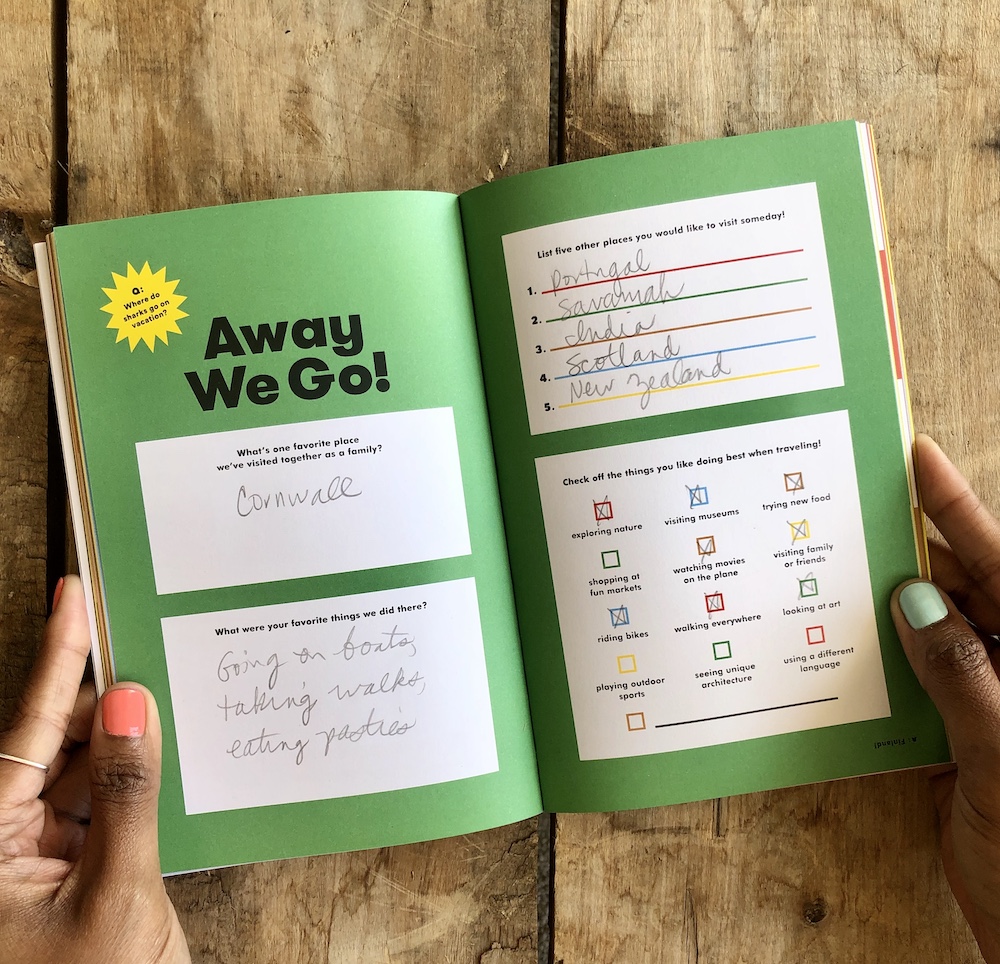 Q:
Where do
sharks go on
vacation?
Away
We Go!
What's one favorite place
we've visited together as a family?
Cornwall
What were your favorite things we did there?
Going on boats,
taking walks,
eating pasties
List five other places you would like to visit someday!
1. Portugal
2. Savannah
3. India
4. Scotland
5. New Zealand
Check off the things you like doing best when traveling!
exploring nature
visiting museums
trying new food
shopping at
fun markets
watching movies
on the plane
visiting family
or friends
riding bikes
walking everywhere
looking at art
playing outdoor
sports
seeing unique
architecture
using a different
language
A: Finland!